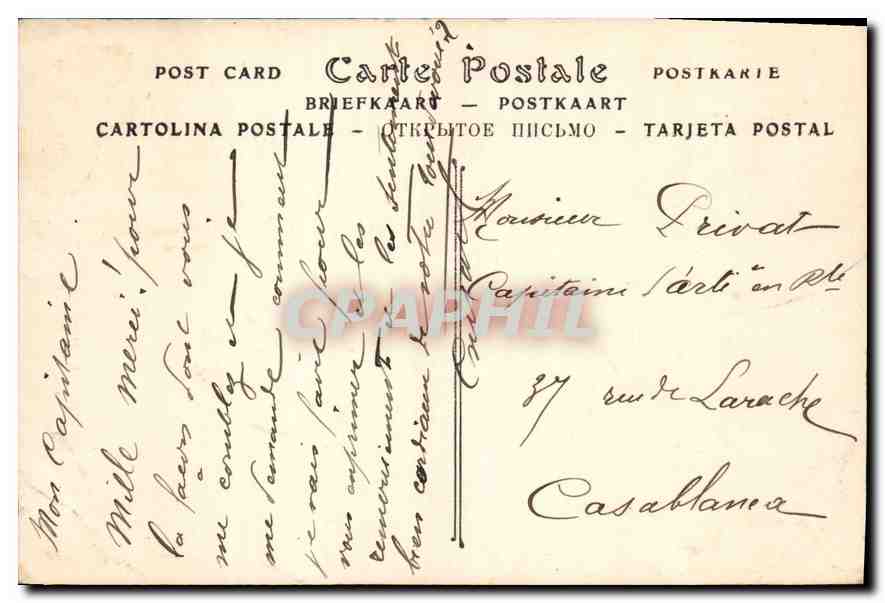 POST CARD Carte Postale POSTKARTE
BRIEFKAART — POSTKAART
CARTOLINA POSTALE – ОТКРЫТОЕ ПИСЬМО – TARJETA POSTAL
Mon Capitaine
Mille merci! pour
la façon dont vous
me comblez et je
me demande comment
je vais faire pour
vous exprimer les
remerciements les sentiments
bien cordiaux de votre tout dévoué
Monsieur Privat
Capitaine d'arti en Rte
37 rue de Larache
Casablanca
CPAPHIL